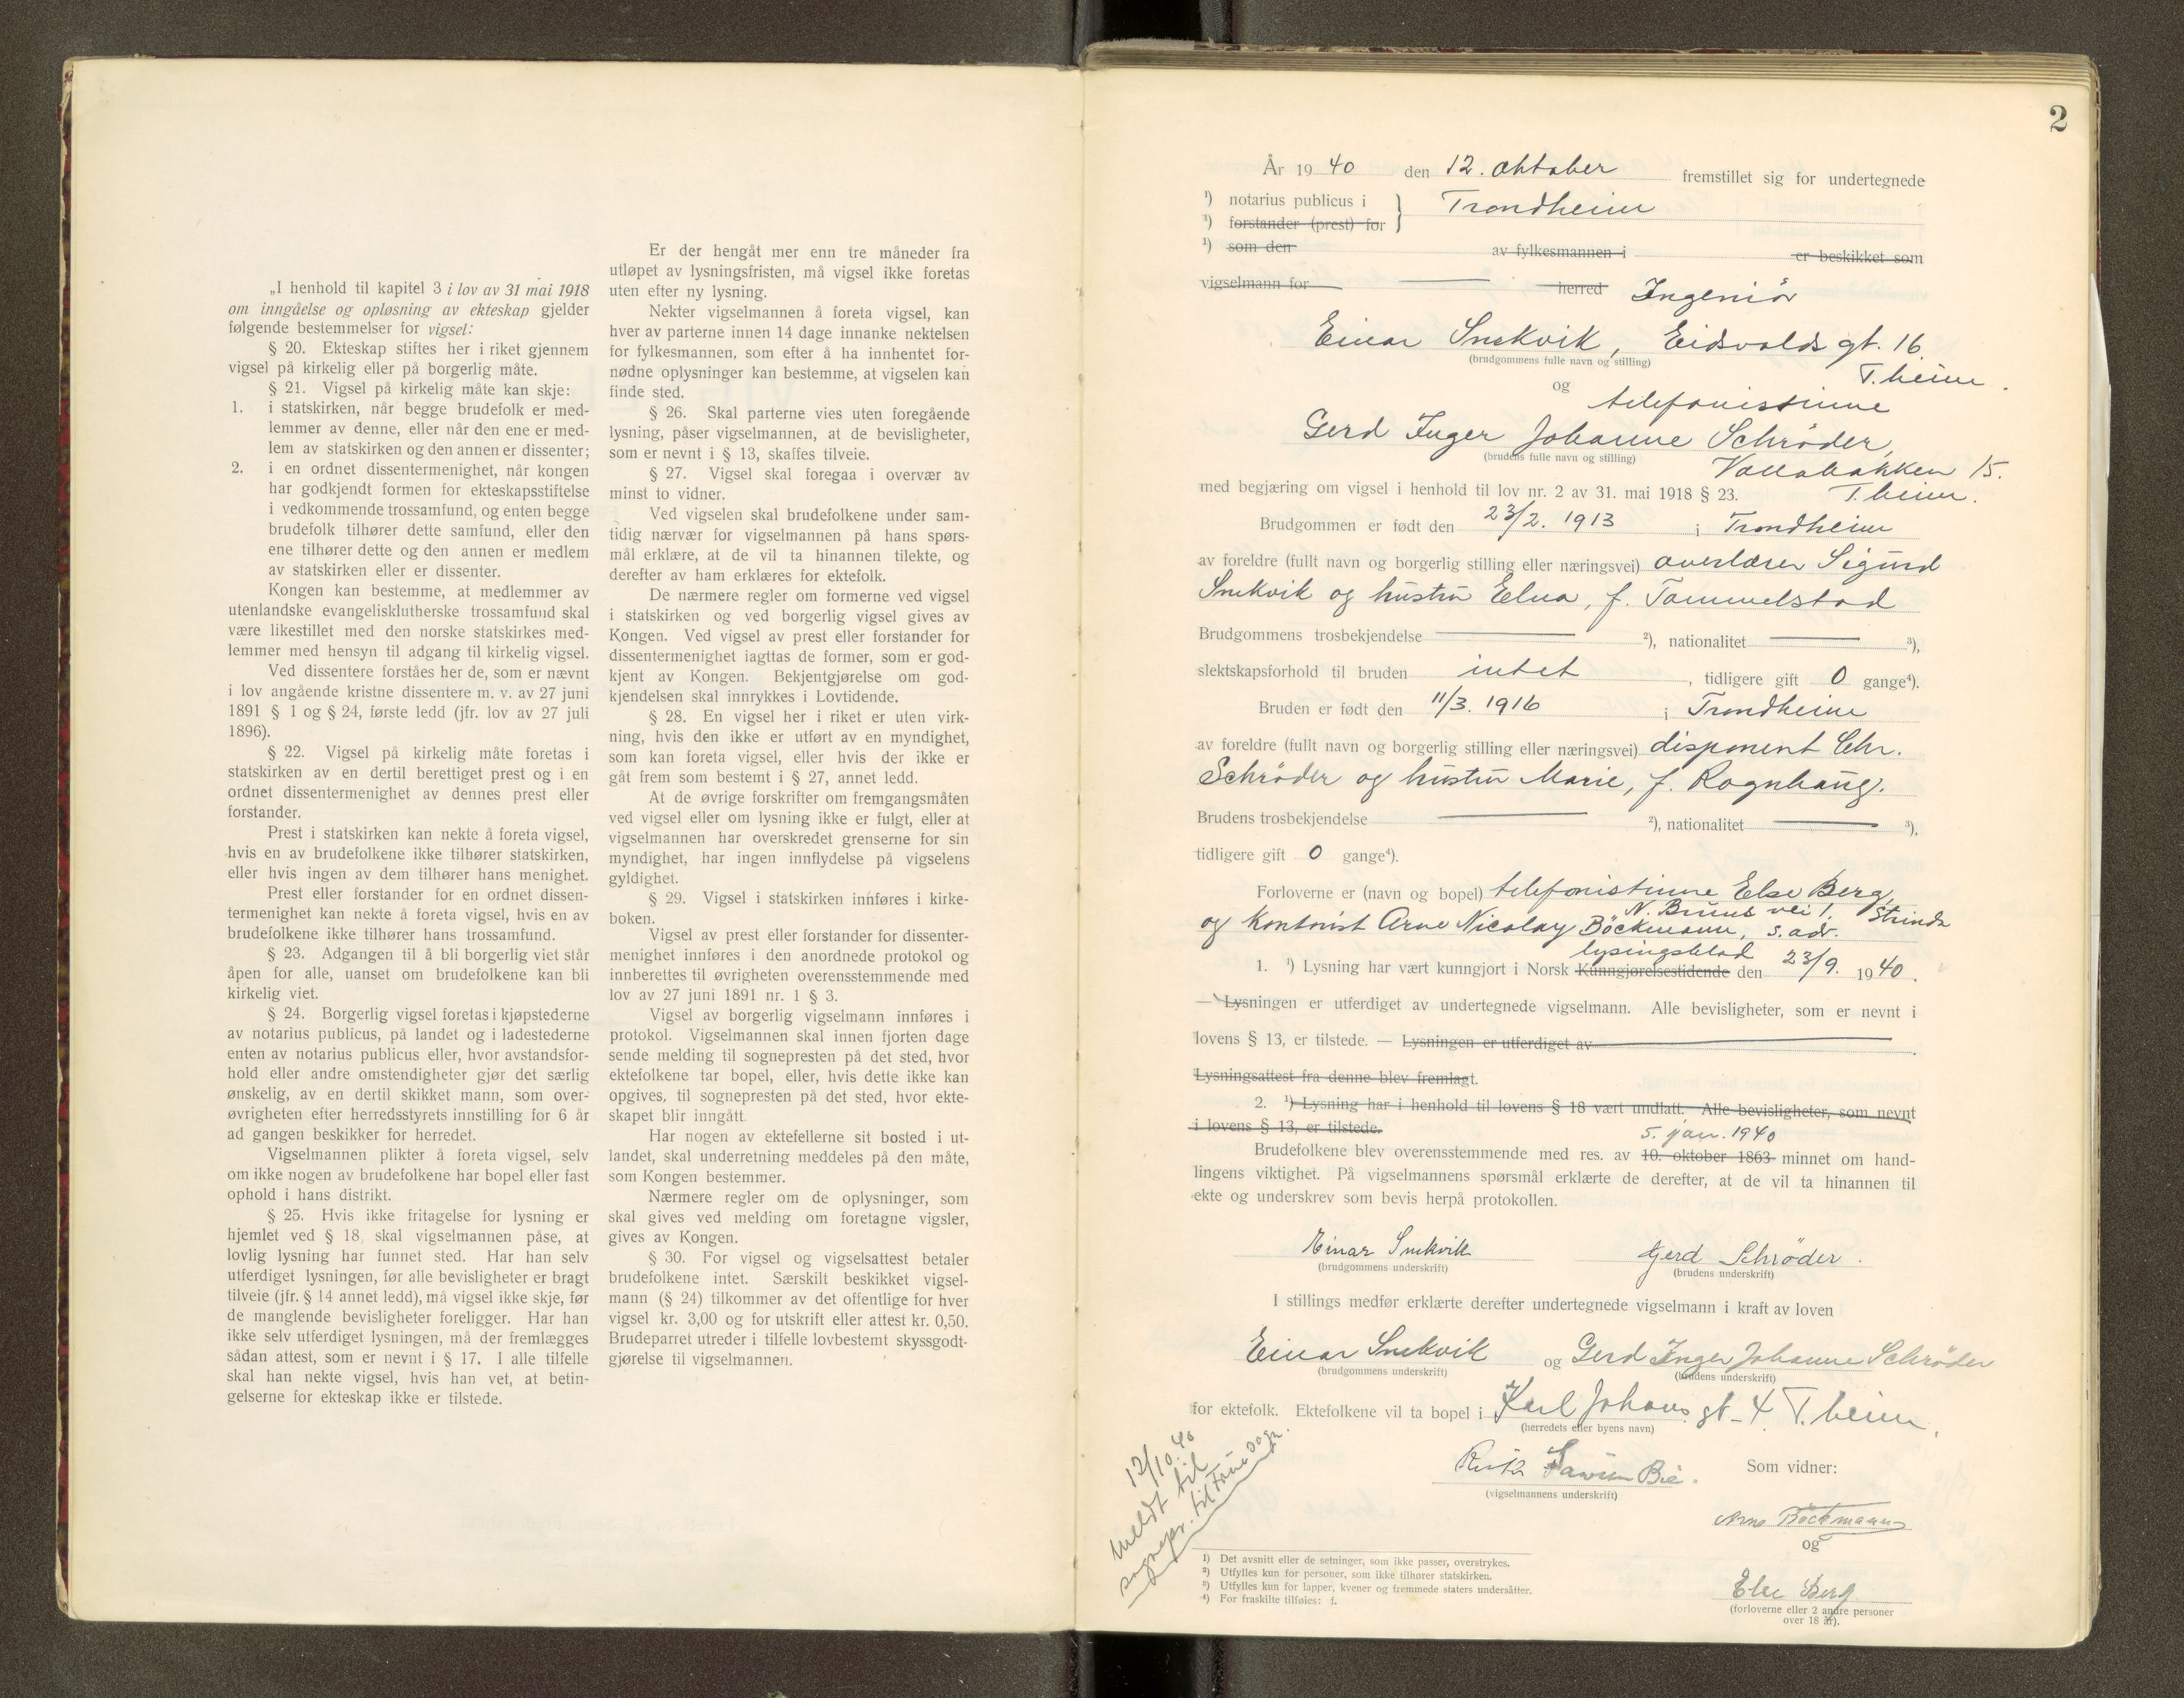 „I henhold til kapitel 3 i lov av 31 mai 1918
om inngåelse og opløsning av ekteskap gjelder
følgende bestemmelser for vigsel:
§ 20. Ekteskap stiftes her i riket gjennem
vigsel på kirkelig eller på borgerlig måte.
§ 21. Vigsel på kirkelig måte kan skje:
1. i statskirken, når begge brudefolk er med-
lemmer av denne, eller når den ene er med-
lem av statskirken og den annen er dissenter;
2. i en ordnet dissentermenighet, når kongen
har godkjendt formen for ekteskapsstiftelse
i vedkommende trossamfund, og enten begge
brudefolk tilhører dette samfund, eller den
ene tilhører dette og den annen er medlem
av statskirken eller er dissenter.
Kongen kan bestemme, at medlemmer av
utenlandske evangelisklutherske trossamfund skal
være likestillet med den norske statskirkes med-
lemmer med hensyn til adgang til kirkelig vigsel.
Ved dissentere forståes her de, som er nævnt
i lov angående kristne dissentere m. v. av 27 juni
1891 § 1 og § 24, første ledd (jfr. lov av 27 juli
1896).
§ 22. Vigsel på kirkelig måte foretas i
statskirken av en dertil berettiget prest og i en
ordnet dissentermenighet av dennes prest eller
forstander.
Prest i statskirken kan nekte å foreta vigsel,
hvis en av brudefolkene ikke tilhører statskirken,
eller hvis ingen av dem tilhører hans menighet.
Prest eller forstander for en ordnet dissen-
termenighet kan nekte å foreta vigsel, hvis en av
brudefolkene ikke tilhører hans trossamfund.
§ 23. Adgangen til å bli borgerlig viet står
åpen for alle, uanset om brudefolkene kan bli
kirkelig viet.
§ 24. Borgerlig vigsel foretas i kjøpstederne
av notarius publicus, på landet og i ladestederne
enten av notarius publicus eller, hvor avstandsfor-
hold eller andre omstendigheter gjør det særlig
ønskelig, av en dertil skikket mann, som over-
øvrigheten efter herredsstyrets innstilling for 6 år
ad gangen beskikker for herredet.
Vigselmannen plikter å foreta vigsel, selv
om ikke nogen av brudefolkene har bopel eller fast
ophold i hans distrikt.
§ 25. Hvis ikke fritagelse for lysning er
hjemlet ved § 18, skal vigselmannen påse, at
lovlig lysning har funnet sted. Har han selv
utferdiget lysningen, før alle bevisligheter er bragt
tilveie (jfr. § 14 annet ledd), må vigsel ikke skje, før
de manglende bevisligheter foreligger. Har han
ikke selv utferdiget lysningen, må der fremlægges
sådan attest, som er nevnt i § 17. I alle tilfelle
skal han nekte vigsel, hvis han vet, at betin-
gelserne for ekteskap ikke er tilstede.
Er der hengåt mer enn tre måneder fra
utløpet av lysningsfristen, må vigsel ikke foretas
uten efter ny lysning.
Nekter vigselmannen å foreta vigsel, kan
hver av parterne innen 14 dage innanke nektelsen
for fylkesmannen, som efter å ha innhentet for-
nødne oplysninger kan bestemme, at vigselen kan
finde sted.
§ 26. Skal parterne vies uten foregående
lysning, påser vigselmannen, at de bevisligheter,
som er nevnt i § 13, skaffes tilveie.
§ 27. Vigsel skal foregaa i overvær av
minst to vidner.
Ved vigselen skal brudefolkene under sam-
tidig nærvær for vigselmannen på hans spørs-
mål erklære, at de vil ta hinannen tilekte, og
derefter av ham erklæres for ektefolk.
De nærmere regler om formerne ved vigsel
i statskirken og ved borgerlig vigsel gives av
Kongen. Ved vigsel av prest eller forstander for
dissentermenighet iagttas de former, som er god-
kjent av Kongen. Bekjentgjørelse om god-
kjendelsen skal innrykkes i Lovtidende.
§ 28. En vigsel her i riket er uten virk-
ning, hvis den ikke er utført av en myndighet,
som kan foreta vigsel, eller hvis der ikke er
gåt frem som bestemt i § 27, annet ledd.
At de øvrige forskrifter om fremgangsmåten
ved vigsel eller om lysning ikke er fulgt, eller at
vigselmannen har overskredet grenserne for sin
myndighet, har ingen innflydelse på vigselens
gyldighet.
§ 29. Vigsel i statskirken innføres i kirke-
boken.
Vigsel av prest eller forstander for dissenter-
menighet innføres i den anordnede protokol og
innberettes til øvrigheten overensstemmende med
lov av 27 juni 1891 nr. 1 § 3.
Vigsel av borgerlig vigselmann innføres i
protokol. Vigselmannen skal innen fjorten dage
sende melding til sognepresten på det sted, hvor
ektefolkene tar bopel, eller, hvis dette ikke kan
opgives, til sognepresten på det sted, hvor ekte-
skapet blir inngått.
Har nogen av ektefellerne sit bosted i ut-
landet, skal underretning meddeles på den måte,
som Kongen bestemmer.
Nærmere regler om de oplysninger, som
skal gives ved melding om foretagne vigsler,
gives av Kongen.
§ 30. For vigsel og vigselsattest betaler
brudefolkene intet. Særskilt beskikket vigsel-
mann (§ 24) tilkommer av det offentlige for hver
vigsel kr. 3,00 og for utskrift eller attest kr. 0,50.
Brudeparret utreder i tilfelle lovbestemt skyssgodt-
gjørelse til vigselmannen.
2
År 1940 den 12. oktober fremstillet sig for undertegnede
¹) notarius publicus i } Trondheim
¹) forstander (prest) for
¹) som den av fylkesmannen i er beskikket som
vigselmann for herred Ingeniör
Einar Snekvik, Eidsvolds gt. 16
(brudgommens fulle navn og stilling)
T.heim.
og
telefonistinne
Gerd Inger Johanne Schröder,
(brudens fulle navn og stilling)
Vollabakken 15.
med begjæring om vigsel i henhold til lov nr. 2 av 31. mai 1918 § 23. T.heim.
Brudgommen er født den 23/2. 1913 i Trondheim
av foreldre (fullt navn og borgerlig stilling eller næringsvei) overlærer Sigurd
Snekvik og hustru Elna, f. Tommelstad
Brudgommens trosbekjendelse ²), nationalitet ³),
slektskapsforhold til bruden intet, tidligere gift 0 gange⁴).
Bruden er født den 11/3. 1916 i Trondheim
av foreldre (fullt navn og borgerlig stilling eller næringsvei) disponent Chr.
Schröder og hustru Marie, f. Rognhaug.
Brudens trosbekjendelse ²), nationalitet ³),
tidligere gift 0 gange⁴).
Forloverne er (navn og bopel) telefonistinne Else Berg,
N. Bruns vei 1. Strinda
og kontorist Arne Nicolay Böckmann, s. adr.
lysingsblad
1. ¹) Lysning har vært kunngjort i Norsk Kunngjørelsestidende den 23/9. 1940.
— Lysningen er utferdiget av undertegnede vigselmann. Alle bevisligheter, som er nevnt i
lovens § 13, er tilstede. — Lysningen er utferdiget av
Lysningsattest fra denne blev fremlagt.
2. ¹) Lysning har i henhold til lovens § 18 vært undlatt. Alle bevisligheter, som nevnt
i lovens § 13, er tilstede.
5. jan. 1940
Brudefolkene blev overensstemmende med res. av 10. oktober 1863 minnet om hand-
lingens viktighet. På vigselmannens spørsmål erklærte de derefter, at de vil ta hinannen til
ekte og underskrev som bevis herpå protokollen.
Einar Snekvik Gerd Schröder.
(brudgommens underskrift) (brudens underskrift)
I stillings medfør erklærte derefter undertegnede vigselmann i kraft av loven
Einar Snekvik og Gerd Inger Johanne Schröder
(brudgommens underskrift) (brudens underskrift)
for ektefolk. Ektefolkene vil ta bopel i Karl Johans gt. 4 T.heim,
(herredets eller byens navn)
Som vidner:
(vigselmannens underskrift)
Arne Böckmann
og
Else Berg
(forloverne eller 2 andre personer
over 18 år).
12/10.40
meldt til
sognepr. til Frue sogn.
¹) Det avsnitt eller de setninger, som ikke passer, overstrykes.
²) Utfylles kun for personer, som ikke tilhører statskirken.
³) Utfylles kun for lapper, kvener og fremmede staters undersåtter.
⁴) For fraskilte tilføies: f.